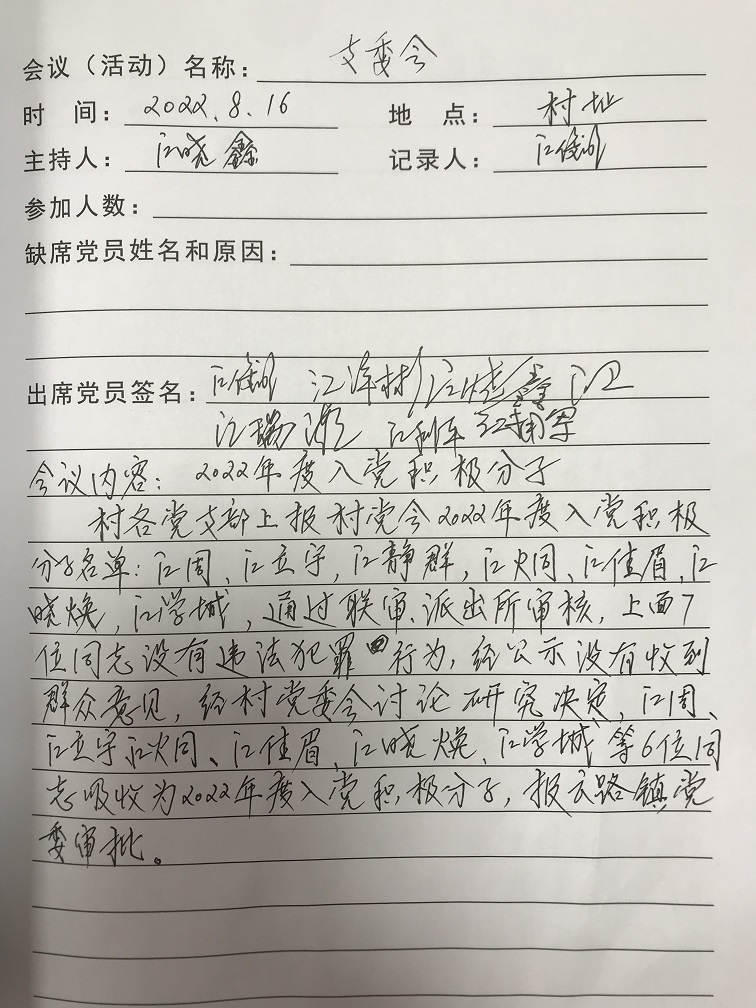 会议（活动）名称：支委会
时 间：2022.8.16 地 点：村址
主持人：江晓鑫 记录人：江
参加人数：
缺席党员姓名和原因：
出席党员签名：江 江泽彬 江晓鑫 江
江瑞 江 江
会议内容：2022年度入党积极分子
村各党支部上报村党会2022年度入党积极
分子名单：江周、江立宇，江静群，江火同、江佳眉、江
晓焕，江学城，通过联审、派出所审核，上面7
位同志没有违法犯罪行为，经公示没有收到
群众意见，经村党委会讨论研究决定，江周、
江立宇、江火同、江佳眉、江晓焕、江学城、等6位同
志吸收为2022年度入党积极分子，报云路镇党
委审批。